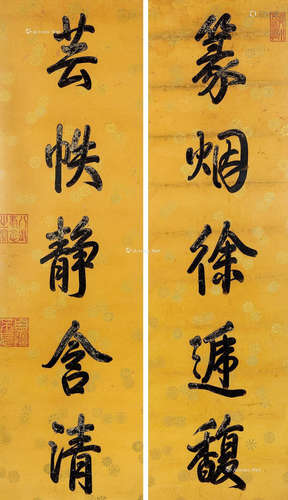 篆烟徐递馥
芸帙静含清